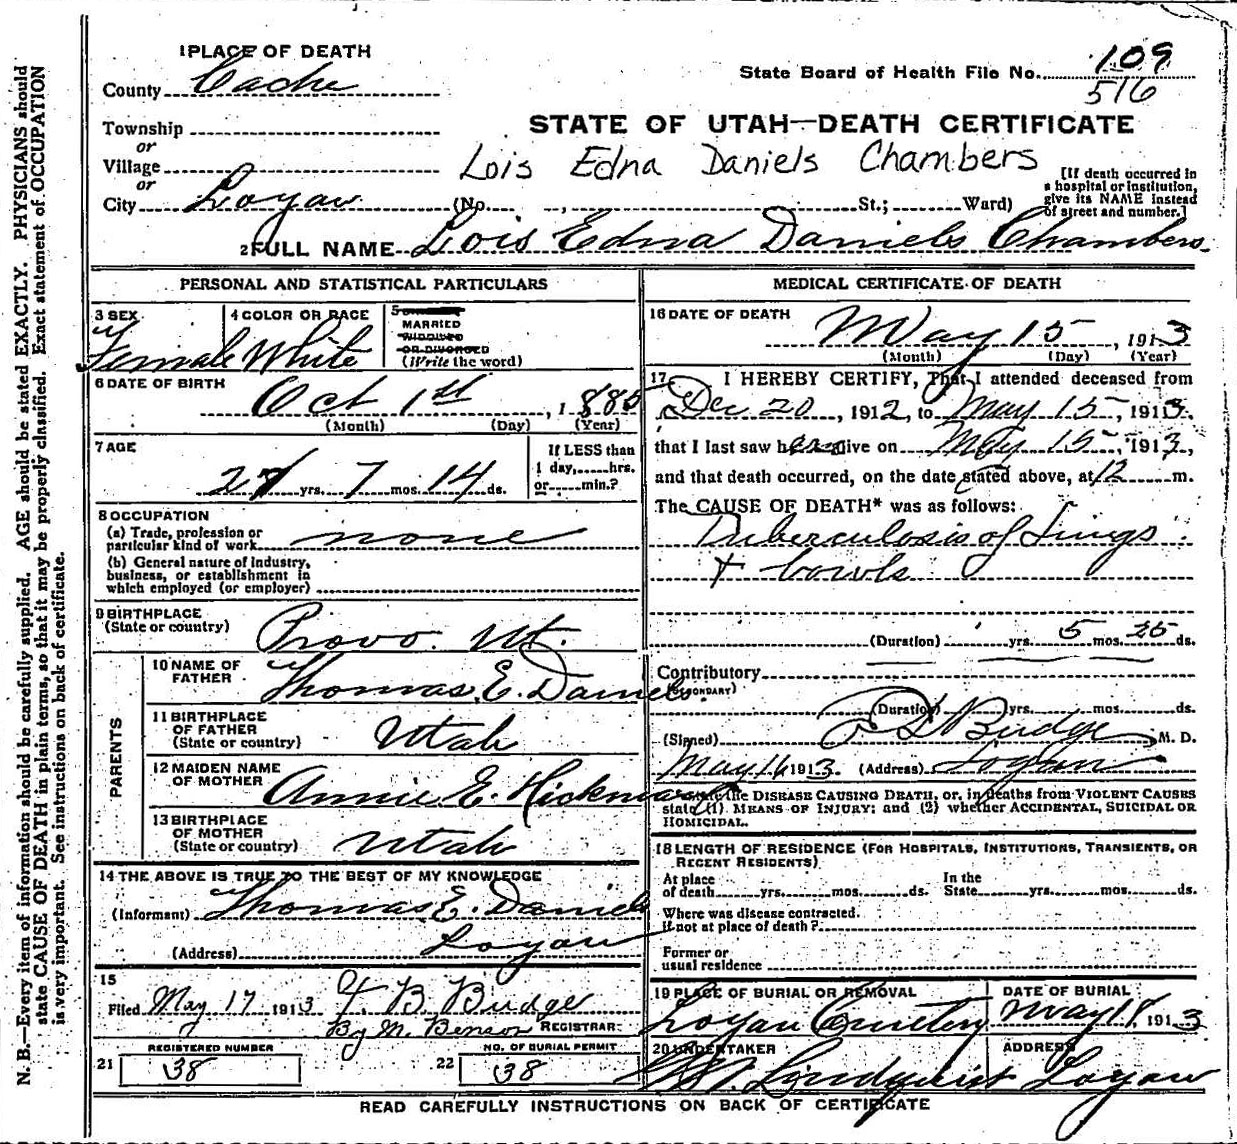 1 PLACE OF DEATH
County Cache
State Board of Health File No. 109
516
Township
or
Village
or
City Logan (No. , St.; Ward)
STATE OF UTAH—DEATH CERTIFICATE
Lois Edna Daniels Chambers
[If death occurred in
a hospital or institution,
give its NAME instead
of street and number.]
2 FULL NAME Lois Edna Daniels Chambers
PERSONAL AND STATISTICAL PARTICULARS
3 SEX
Female
4 COLOR OR RACE
White
5
MARRIED
WIDOWED
OR DIVORCED
(Write the word)
6 DATE OF BIRTH
Oct 1st, 1885
(Month) (Day) (Year)
7 AGE
27 yrs. 7 mos. 14 ds.
If LESS than
1 day, hrs.
or min.?
8 OCCUPATION
(a) Trade, profession or
particular kind of work none
(b) General nature of industry,
business, or establishment in
which employed (or employer)
9 BIRTHPLACE
(State or country) Provo Ut.
PARENTS
10 NAME OF
FATHER Thomas E. Daniels
11 BIRTHPLACE
OF FATHER
(State or country) Utah
12 MAIDEN NAME
OF MOTHER Annie E. Hickman
13 BIRTHPLACE
OF MOTHER
(State or country) Utah
14 THE ABOVE IS TRUE TO THE BEST OF MY KNOWLEDGE
(Informant) Thomas E. Daniels
(Address) Logan
15
Filed May 17 1913 T B Budge
By M. Benson REGISTRAR
REGISTERED NUMBER
21 38
NO. OF BURIAL PERMIT
22 38
MEDICAL CERTIFICATE OF DEATH
16 DATE OF DEATH
May 15, 1913
(Month) (Day) (Year)
17 I HEREBY CERTIFY, That I attended deceased from
Dec 20, 1912, to May 15, 1913,
that I last saw her alive on May 15, 1913,
and that death occurred, on the date stated above, at 12 m.
The CAUSE OF DEATH* was as follows:
Tuberculosis of Lungs
+ bowls
(Duration) yrs. 5 mos. 25 ds.
Contributory
(SECONDARY)
(Duration) yrs. mos. ds.
(Signed) Budge M. D.
May 16 1913. (Address) Logan
state the DISEASE CAUSING DEATH, or, in deaths from VIOLENT CAUSES
state (1) MEANS OF INJURY; and (2) whether ACCIDENTAL, SUICIDAL OR
HOMICIDAL.
18 LENGTH OF RESIDENCE (FOR HOSPITALS, INSTITUTIONS, TRANSIENTS, OR
RECENT RESIDENTS)
At place
of death yrs. mos. ds.
In the
State yrs. mos. ds.
Where was disease contracted.
if not at place of death?
Former or
usual residence
19 PLACE OF BURIAL OR REMOVAL
Logan Cemetery
DATE OF BURIAL
May 18, 1913
20 UNDERTAKER
Lindquist
ADDRESS
Logan
READ CAREFULLY INSTRUCTIONS ON BACK OF CERTIFICATE
N. B.—Every item of information should be carefully supplied. AGE should be stated EXACTLY. PHYSICIANS should
state CAUSE OF DEATH in plain terms, so that it may be properly classified. Exact statement of OCCUPATION
is very important. See instructions on back of certificate.